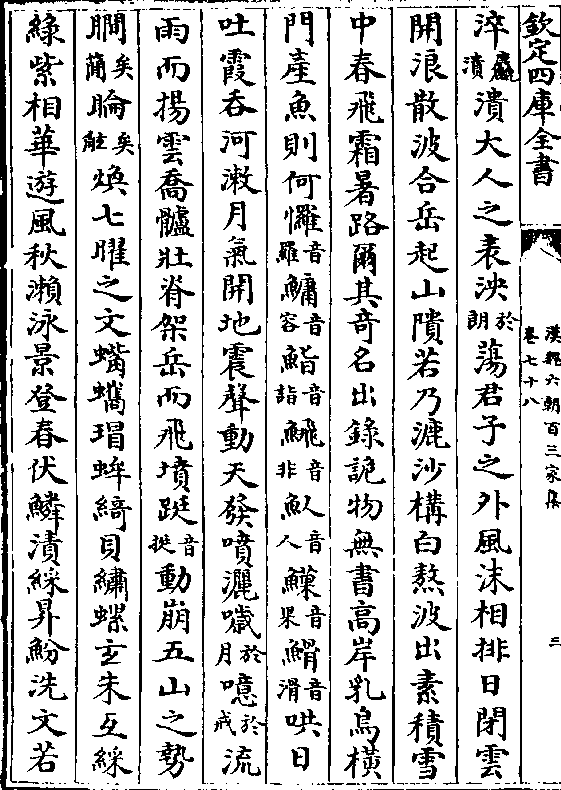 欽定四庫全書
漢魏六朝百三家集
卷七十八
三
淬瀆大人之表泱於朗蕩君子之外風沫相排日閉雲
開浪散波合岳起山隤若乃漉沙構白熬波出素積雪
中春飛霜暑路爾其奇名出錄詭物無書高岸乳鳥橫
門產魚則何㦬音羅鱅音容鮨音詣䱀音非魜音人䱋音果䱻音滑哄日
吐霞吞河漱月氣開地震聲動天發噴灑噦於月噫於戒流
雨而揚雲喬髗壯脊架岳而飛墳䟫音挺動崩五山之勢
矣簡睔矣䏲煥七曜之文蟕蠵瑁蛑綺貝繡螺玄朱互綵
綠紫相華遊風秋瀨泳景登春伏鱗漬綵昇魵洗文若